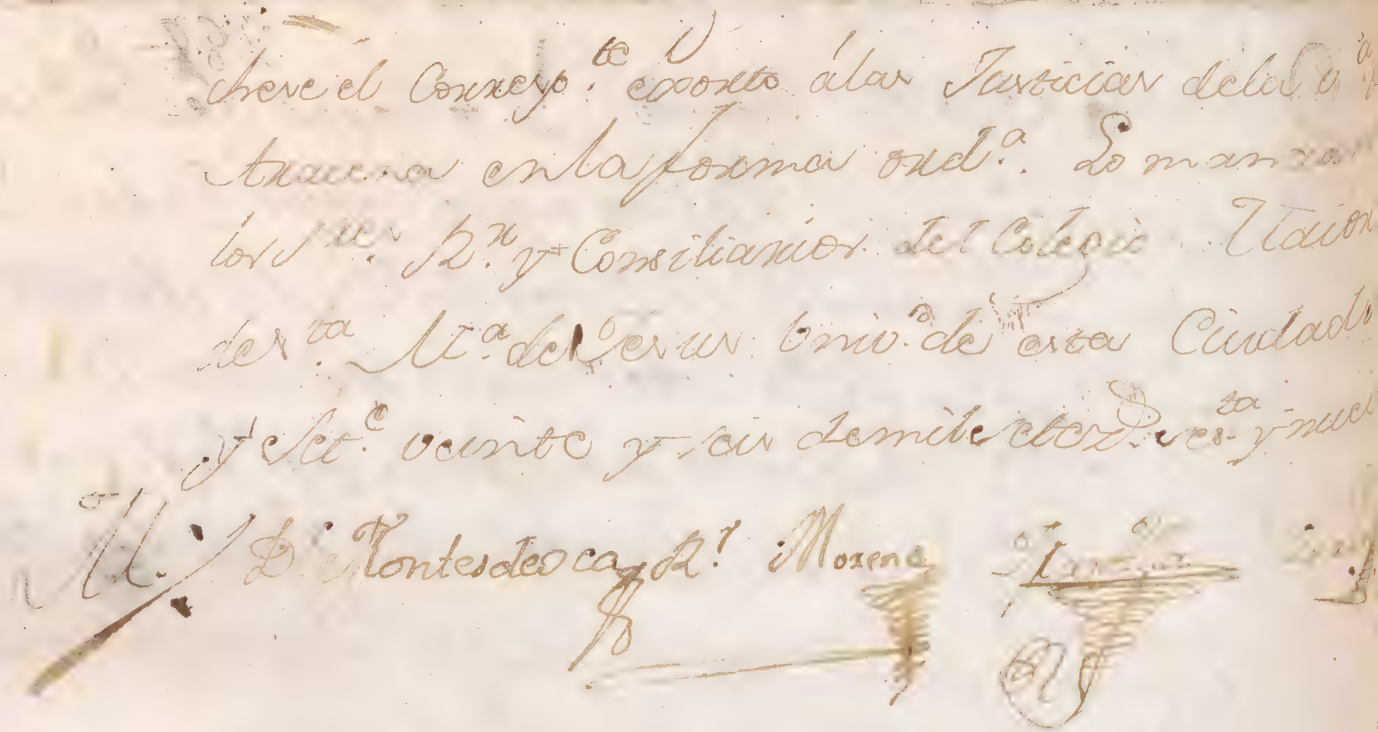 chese el Corresp.te exorto álas Justicias dela
en la forma ord.a Lo man
los S.res R.r y Consiliarios del Colegio
de s.ta M.a de Jesus Univ.d de esta Ciudad
y Set.e veinte y seis de mil setez. y nue
D.r Montesdeoca R.r Moreno